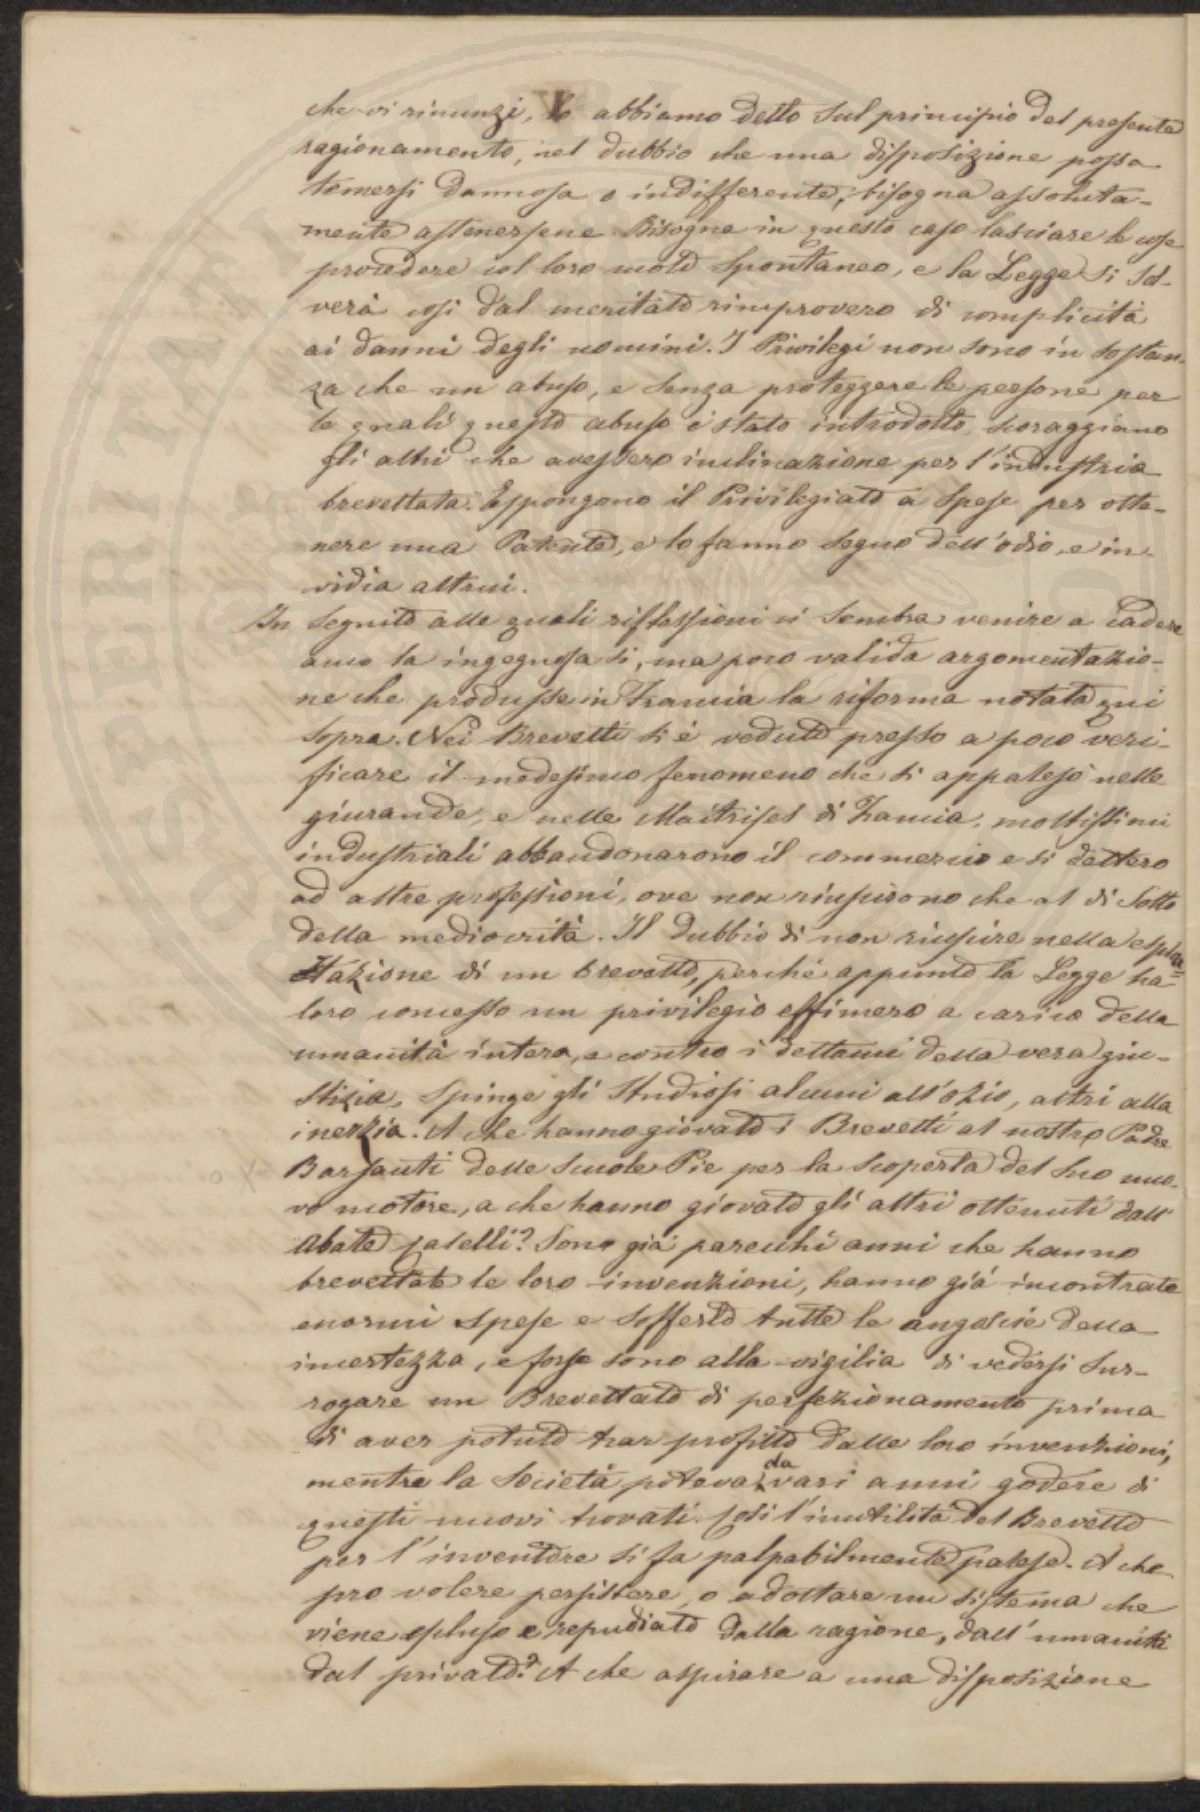 che vi rinunzi, lo abbiamo detto sul principio del presente
ragionamento, nel dubbio che una disposizione possa
temersi dannosa o indifferente, bisogna assoluta-
mente astenersene. Bisogna in questo caso lasciare le cose
procedere col loro moto spontaneo, e la Legge si sal-
verà così dal meritato rimprovero di complicità
ai danni degli uomini. I Privilegi non sono in sostan-
za che un abuso, e senza proteggere le persone per
le quali questo abuso è stato introdotto, scoraggiano
gli altri che avessero inclinazione per l'industria
brevettata. Espongono il Privilegiato a spese per otte-
nere una Patente, e lo fanno segno dell'odio e in-
vidia altrui.
In seguito alle quali riflessioni ci sembra venire a cadere
anco la ingegnosa sì, ma poco valida argomentazio-
ne che produsse in Francia la riforma notata qui
sopra. Nei Brevetti si è veduto presso a poco veri-
ficare il medesimo fenomeno che si appalesò nelle
giurande, e nelle Maitrises di Francia; moltissimi
industriali abbandonarono il commercio e si dettero
ad altre professioni, ove non riuscirono che al di sotto
della mediocrità. Il dubbio di non riuscire nella esplo=
tazione di un brevetto, perché appunto la Legge ha
loro concesso un privilegio effimero a carico della
umanità intera, e contro i dettami della vera giu-
stizia, spinge gli studiosi alcuni all'ozio, altri alla
inerzia. A che hanno giovato i Brevetti al nostro Padre
Barsanti delle Scuole Pie per la scoperta del suo nuo-
vo motore, a che hanno giovato gli altri ottenuti dall'
Abate Caselli? Sono già parecchi anni che hanno
brevettate le loro invenzioni, hanno già incontrate
enormi spese e sofferto tutte le angoscie della
incertezza, e forse sono alla vigilia di vedersi sur-
rogare un Brevettato di perfezionamento prima
di aver potuto trar profitto dalle loro invenzioni,
mentre la Società poteva da vari anni godere di
questi nuovi trovati. Così l'inutilità del Brevetto
per l'inventore si fa palpabilmente palese. A che
pro volere persistere, o adottare un sistema che
viene espluso e repudiato dalla ragione, dall'umanità
dal privato? A che aspirare a una disposizione